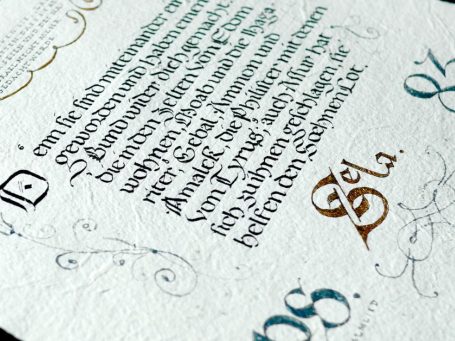 Denn sie sind miteinander ein
geworden und haben einen
Bund wider dich gemacht,
die in den Zelten von Edom
wohnen, Moab und die Haga
riter, Gebal, Ammon und
Amalek, die Philister mit denen
von Tyrus; auch Assur hat
sich zu ihnen geschlagen, sie
helfen den Söhnen Lot.
Sela.
ps.